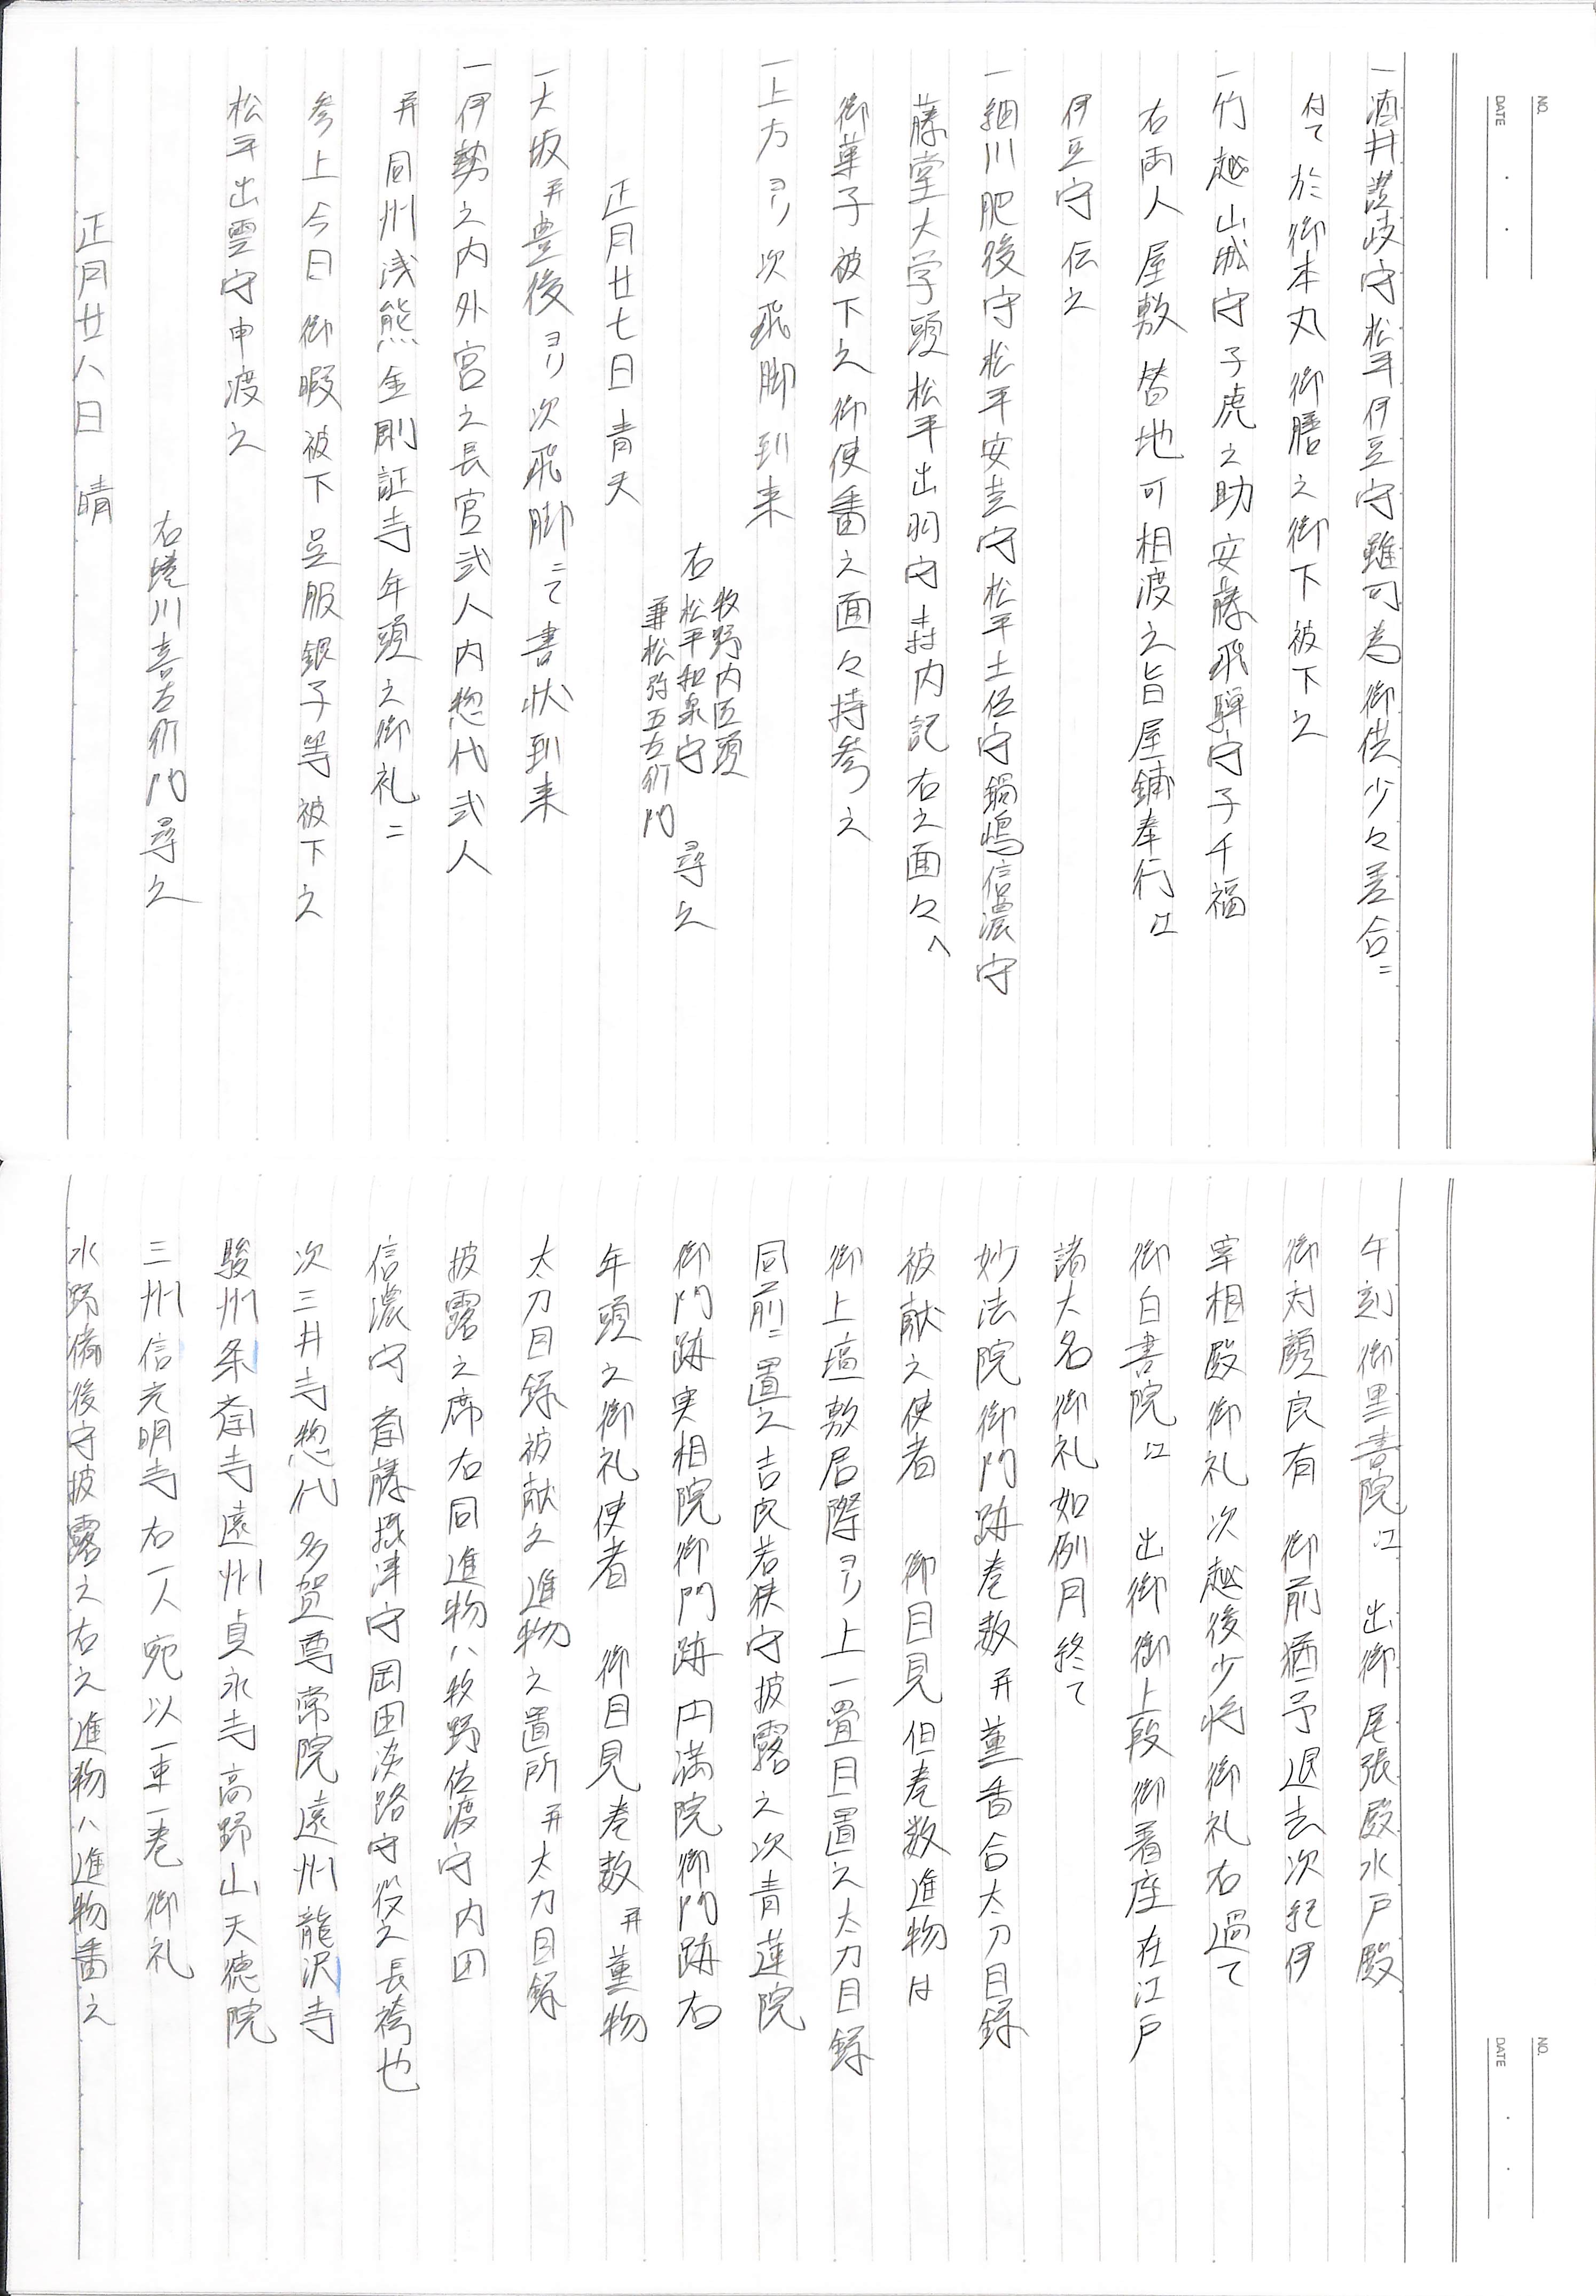 NO.
DATE
一酒井讃岐守松平伊豆守雖可為御供少々差合ニ
付て於御本丸御膳之御下被下之
一竹越山城守子虎之助安藤飛騨守子千福
右両人屋敷替地可相渡之旨屋鋪奉行江
伊豆守伝之
一細川肥後守松平安芸守松平土佐守鍋嶋信濃守
藤堂大学頭松平出羽守森内記右之面々へ
御菓子被下之御使番之面々持参之
一上方ヨリ次飛脚到来
牧野内匠頭
右松平和泉守 尋之
兼松弥五左衛門
正月廿七日青天
一大坂并豊後ヨリ次飛脚ニて書状到来
一伊勢之内外宮之長官弐人内惣代弐人
并同州浅熊金剛証寺年頭之御礼ニ
参上今日御暇被下呉服銀子等被下之
松平出雲守申渡之
右蜷川喜左衛門尋之
正月廿八日 晴
NO.
DATE
午刻御黒書院江 出御尾張殿水戸殿
御対顔良有 御前猶予退去次紀伊
宰相殿御礼次越後少将御礼右過て
御白書院江 出御御上段御着座在江戸
諸大名御礼如例月終て
妙法院御門跡巻数并薫香合太刀目録
被献之使者 御目見但巻数進物は
御上壇敷居際ヨリ上一畳目置之太刀目録
同前ニ置之吉良若狭守披露之次青蓮院
御門跡実相院御門跡円満院御門跡右
年頭之御礼使者 御目見巻数并薫物
太刀目録被献之進物之置所并太刀目録
披露之席右同進物ハ牧野佐渡守内田
信濃守斎藤摂津守岡田淡路守役之長袴也
次三井寺惣代多賀尊常院遠州龍沢寺
駿州条斎寺遠州貞永寺高野山天徳院
三州信光明寺右一人宛以一束一巻御礼
水野備後守披露之右之進物ハ進物番之